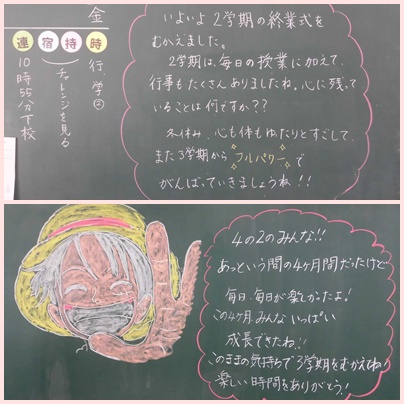 金
時 行、学②
持
宿 チャレンジを見る
連 10時55分下校
いよいよ2学期の終業式を
むかえました。
2学期は、毎日の授業に加えて、
行事もたくさんありましたね。心に残って
いることは何ですか??
冬休み、心も体もゆたりとすごして、
また3学期から フルパワー で
がんばっていきましょうね!!
4の2のみんな!!
あっという間の4ヶ月間だったけど
毎日、毎日が楽しかったよ!
この4ヶ月みんないっぱい
成長できたね!!
このままの気持ちで3学期をむかえてね♪
楽しい時間をありがとう!